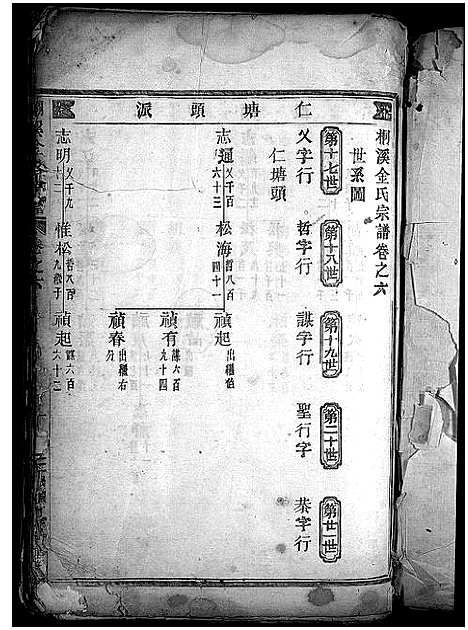 仁塘頭派
桐溪金氏宗譜卷之六
世系圖
第十七世 第十八世 第十九世 第二十世 第廿一世
乂字行 哲字行 謀字行 聖行字 恭字行
仁塘頭
志通 乂千百六十三 松海 哲八百四十一 禎起 出繼伯
禎有 謀六百九十四
禎春 出繼右分
志明 乂千九十二 惟松 哲八百九繼子 禎起 謀六百六十二